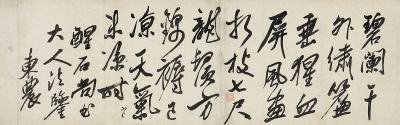 碧闌干
外繡簾
垂猩血
屏風畫
折枝尺
龍鬚方
錦褥已
涼天氣
未時
醒石尚書
大人法鑒
東農